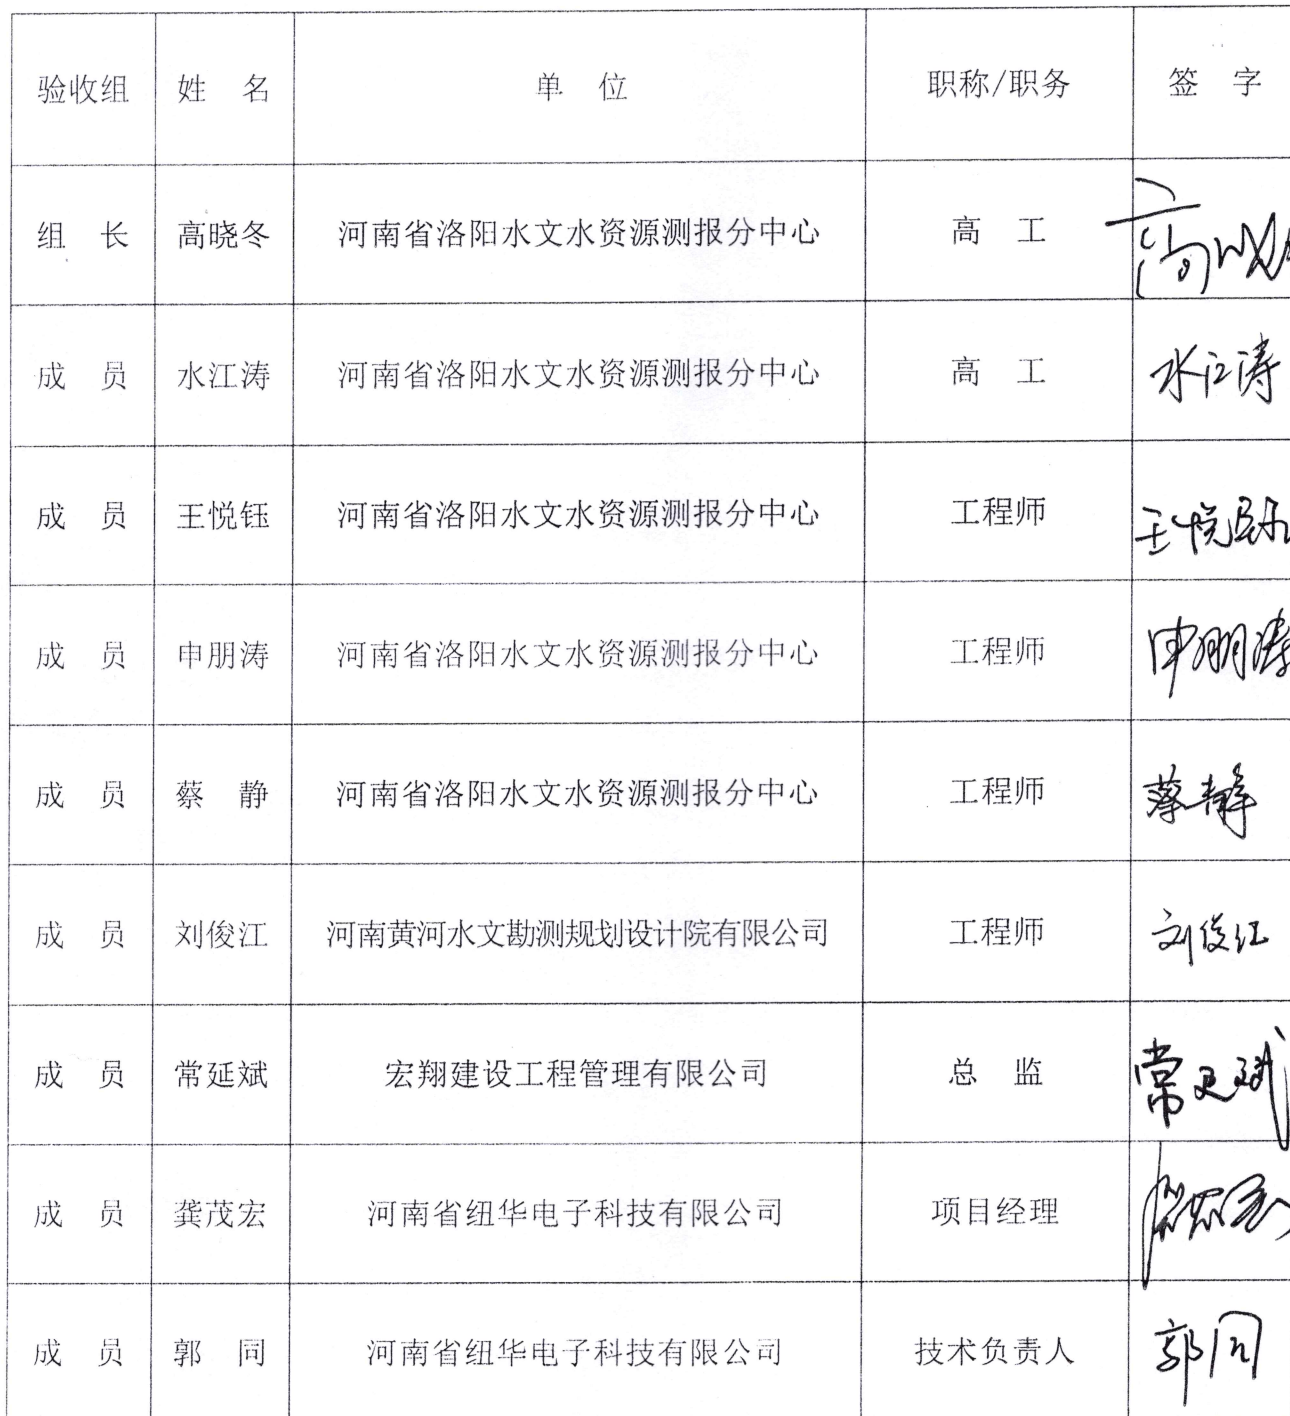 验收组 姓 名 单 位 职称/职务 签 字
组 长 高晓冬 河南省洛阳水文水资源测报分中心 高 工 高晓冬
成 员 水江涛 河南省洛阳水文水资源测报分中心 高 工 水江涛
成 员 王悦钰 河南省洛阳水文水资源测报分中心 工程师 王悦钰
成 员 申朋涛 河南省洛阳水文水资源测报分中心 工程师 申朋涛
成 员 蔡 静 河南省洛阳水文水资源测报分中心 工程师 蔡静
成 员 刘俊江 河南黄河水文勘测规划设计院有限公司 工程师 刘俊江
成 员 常延斌 宏翔建设工程管理有限公司 总 监 常延斌
成 员 龚茂宏 河南省纽华电子科技有限公司 项目经理
成 员 郭 同 河南省纽华电子科技有限公司 技术负责人 郭同